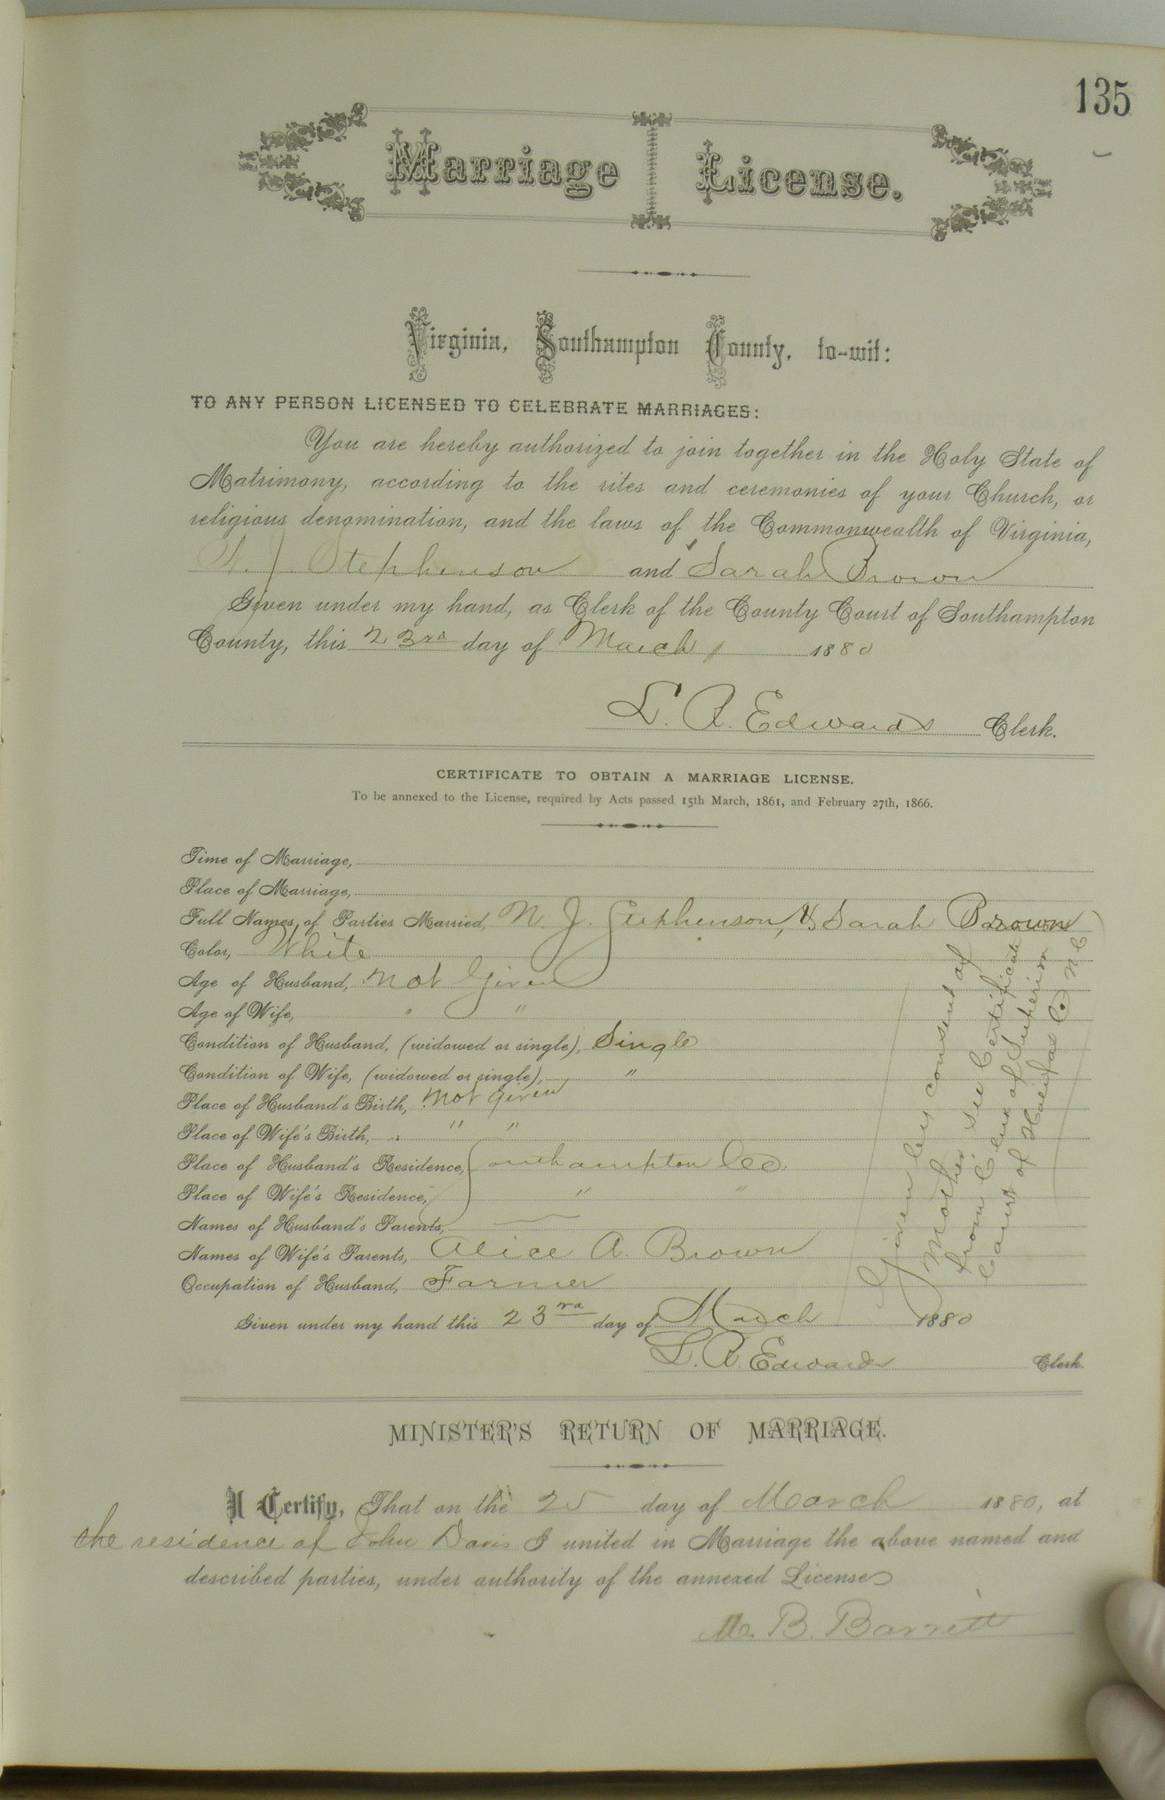 135
Marriage License.
Virginia, Southampton County, to-wit:
TO ANY PERSON LICENSED TO CELEBRATE MARRIAGES:
You are hereby authorized to join together in the Holy State of
Matrimony, according to the rites and ceremonies of your Church, or
religious denomination, and the laws of the Commonwealth of Virginia,
N. J. Stephenson and Sarah Brown
Given under my hand, as Clerk of the County Court of Southampton
County, this 23rd day of March 1880
L. R. Edwards Clerk.
CERTIFICATE TO OBTAIN A MARRIAGE LICENSE.
To be annexed to the License, required by Acts passed 15th March, 1861, and February 27th, 1866.
Time of Marriage,
Place of Marriage,
Full Names of Parties Married, N. J. Stephenson, & Sarah Brown
Color, White
Age of Husband, not Given
Age of Wife, " "
Condition of Husband, (widowed or single), Single
Condition of Wife, (widowed or single), "
Place of Husband's Birth, not given
Place of Wife's Birth, " "
Place of Husband's Residence, Southampton Co.
Place of Wife's Residence, " "
Names of Husband's Parents,
Names of Wife's Parents, Alice A. Brown
Occupation of Husband, Farmer
Given under my hand this 23rd day of March 1880
L. R. Edwards Clerk.
Given by consent of
Mother see Certificate
from Clerk of Superior
Court of Halifax Co N C
MINISTER'S RETURN OF MARRIAGE.
I Certify, That on the 25 day of March 1880, at
the residence of John Davis I united in Marriage the above named and
described parties, under authority of the annexed License
B. Barrett